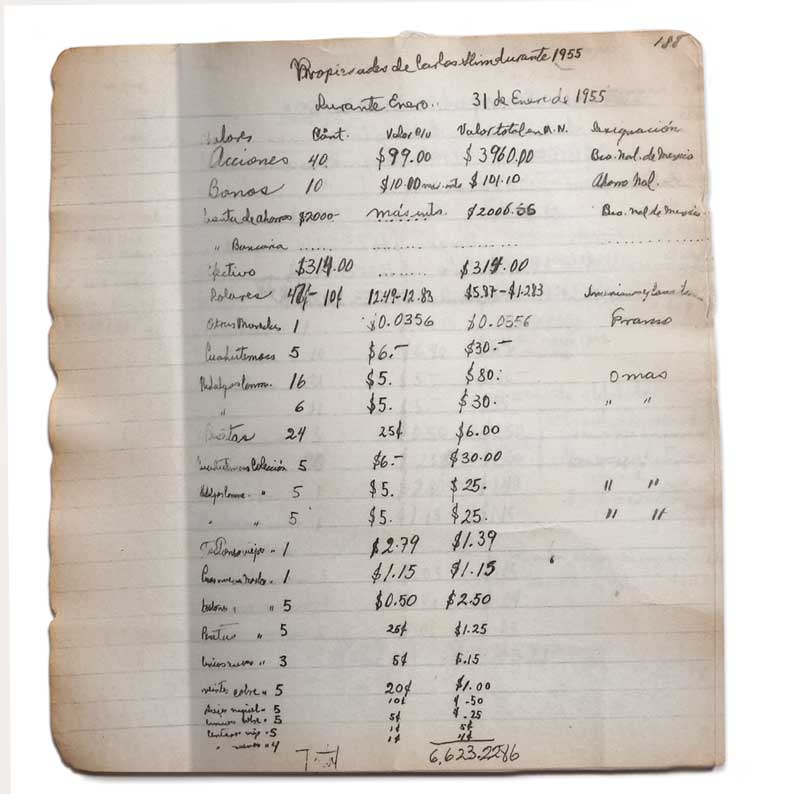 188
Propiedades de Carlos Slim durante 1955
Durante Enero.. 31 de Enero de 1955
Valores Cant. Valor c/u Valor total en M.N. Designación
Acciones 40 $99.00 $3960.00 Bco. Nal. de Mexico
Bonos 10 $10.00 mas ints $101.10 Ahorro Nal.
Cuenta de ahorros $2000- más ints. $2006.55 Bco. Nal de Mexico
" Bancaria ...... ........ ........
Efectivo $314.00 ........ $314.00
Dolares 47¢- 10¢ 12.49-12.83 $5.87-$1.283
Otras Monedas 1 $0.0356 $0.0356 Franco
Cuahutemocs 5 $6.- $30.-
Hidalgos Conm. 16 $5. $80. 0 mas
" 6 $5. $30. " "
Pesetas 24 25¢ $6.00
Cuauhtemocs Colección 5 $6.- $30.00
Hidalgos Conm. " 5 $5. $25. " "
" " 5 $5. $25. " "
" 1 $2.79 $1.39
" 1 $1.15 $1.15
" 5 $0.50 $2.50
Pesetas " 5 25¢ $1.25
" 3 5¢ $.15
veintes cobre " 5 20¢ $1.00
niquel " 5 10¢ $.50
cobre " 5 5¢ $.25
" 5 1¢ 5¢
" nuevos " 4 1¢ 4¢
Total 6,623.2286